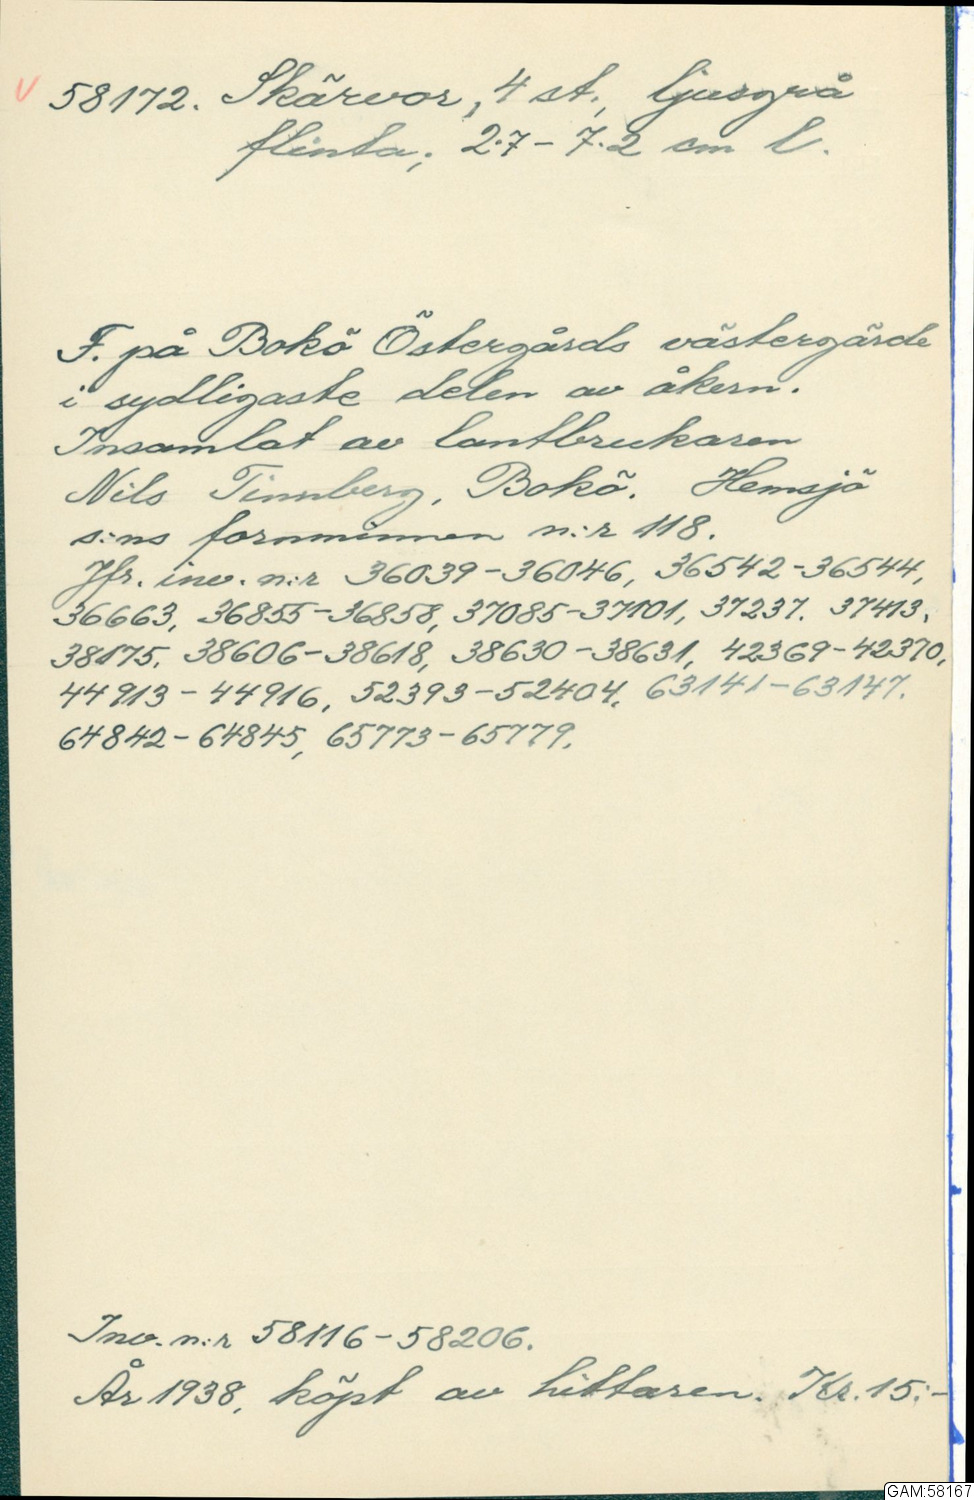 V 58172. Skärvor, 4 st., ljusgrå
flinta; 2.7 - 7.2 cm l.
F. på Bokö Östergårds västergärde
i sydligaste delen av åkern.
Insamlat av lantbrukaren
Nils Tinnberg, Bokö. Hemsjö
s:ns fornminnen n:r 118.
Jfr. inv. n:r 36039-36046, 36542-36544,
36663, 36855-36858, 37085-37101, 37237. 37413,
38175. 38606-38618, 38630-38631, 42369-42370,
44913-44916, 52393-52404, 63141-63147.
64842-64845, 65773-65779.
Inv. n:r 58116-58206.
År 1938, köpt av hittaren. Kr. 15:-
GAM:58167